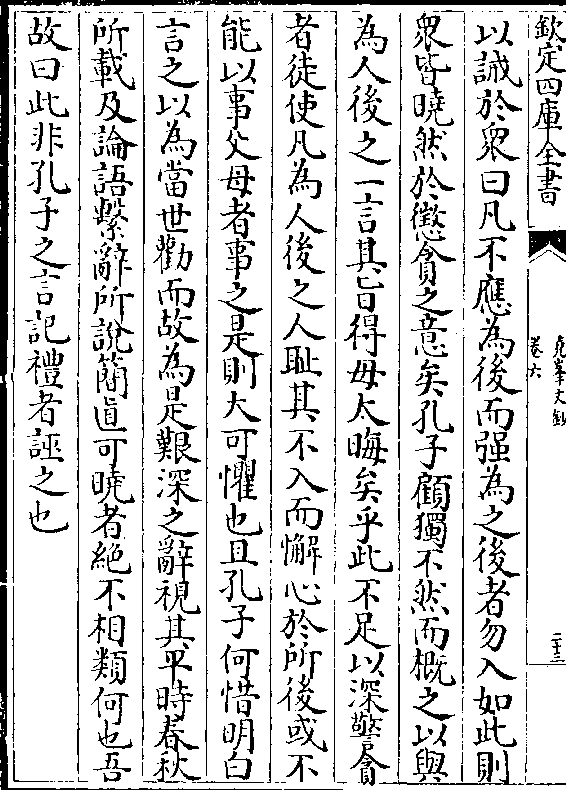 欽定四庫全書
堯峯文鈔
卷六
二十三
以誡於衆曰凡不應為後而强為之後者勿入如此則
衆皆曉然於懲貪之意矣孔子顧獨不然而概之以與
為人後之一言其旨得毋太晦矣乎此不足以深警貪
者徒使凡為人後之人耻其不入而懈心於所後或不
能以事父母者事之是則大可懼也且孔子何惜明白
言之以為當世勸而故為是艱深之辭視其平時春秋
所載及論語繫辭所說簡直可曉者絶不相類何也吾
故曰此非孔子之言記禮者誣之也